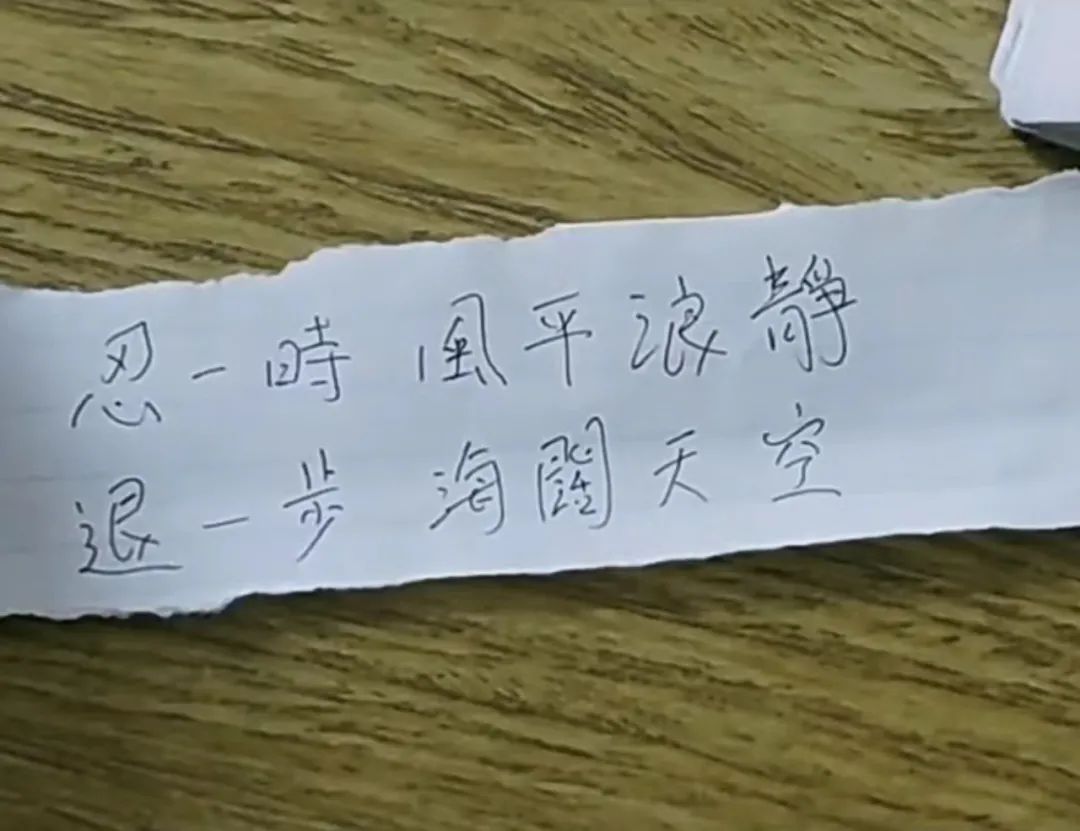 忍一時 風平浪靜
退一步 海闊天空